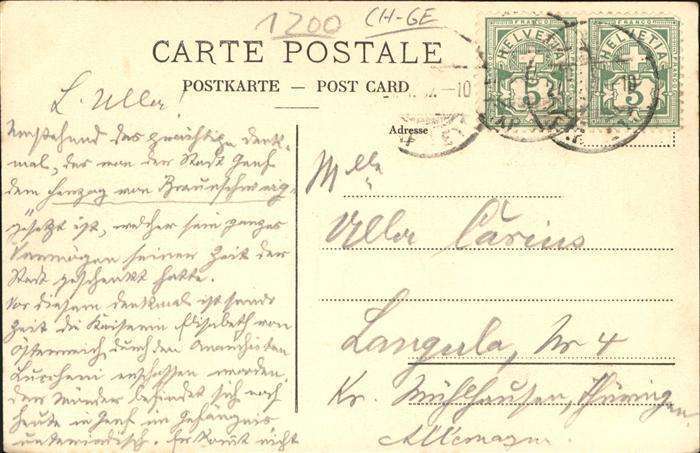 1200
CH-GE
CARTE POSTALE
POSTKARTE — POST CARD
HELVETIA
FRANCO
5
HELVETIA
FRANCO
5
Adresse
L. Ulla!
Umstehend das prächtige Denk-
mal, das von der Stadt Genf
dem Herzog von Braunschweig
gesetzt ist, welcher sein ganzes
Vermögen seiner Zeit der
Stadt geschenkt hatte.
Vor diesem Denkmal ist seiner
Zeit die Kaiserin Elisabeth von
Österreich, durch den Anarchisten
Luccheni erschossen worden,
der Mörder befindet sich noch
heute in Genf im Gefängnis
unterirdisch. Er kommt nicht
Mlle
Ulla Carius
Langula, Nr 4
Kr. Mühlhausen, Thüringen
Allemagne.